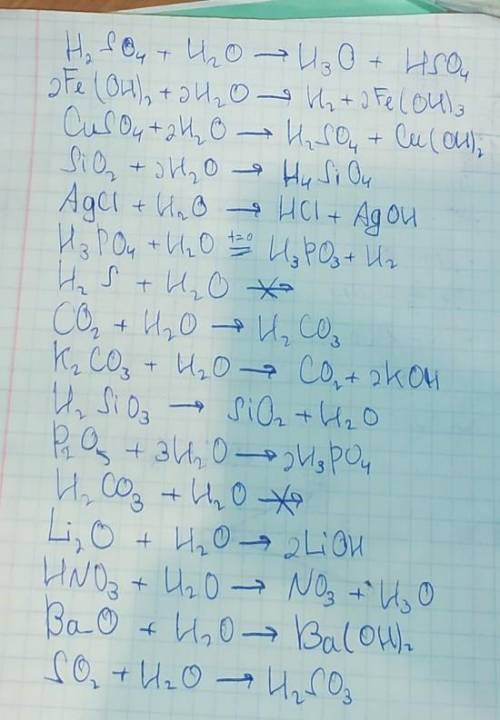 H₂SO₄ + H₂O → H₃O + HSO₄
2Fe(OH)₂ + 2H₂O → H₂ + 2Fe(OH)₃
CuSO₄ + 2H₂O → H₂SO₄ + Cu(OH)₂
SiO₂ + 2H₂O → H₄SiO₄
AgCl + H₂O → HCl + AgOH
H₃PO₄ + H₂O t=0 = H₃PO₃ + H₂
H₂S + H₂O ↛
CO₂ + H₂O → H₂CO₃
K₂CO₃ + H₂O → CO₂ + 2KOH
H₂SiO₃ → SiO₂ + H₂O
P₂O₅ + 3H₂O → 2H₃PO₄
H₂CO₃ + H₂O ↛
Li₂O + H₂O → 2LiOH
HNO₃ + H₂O → NO₃ + H₃O
BaO + H₂O → Ba(OH)₂
SO₂ + H₂O → H₂SO₃